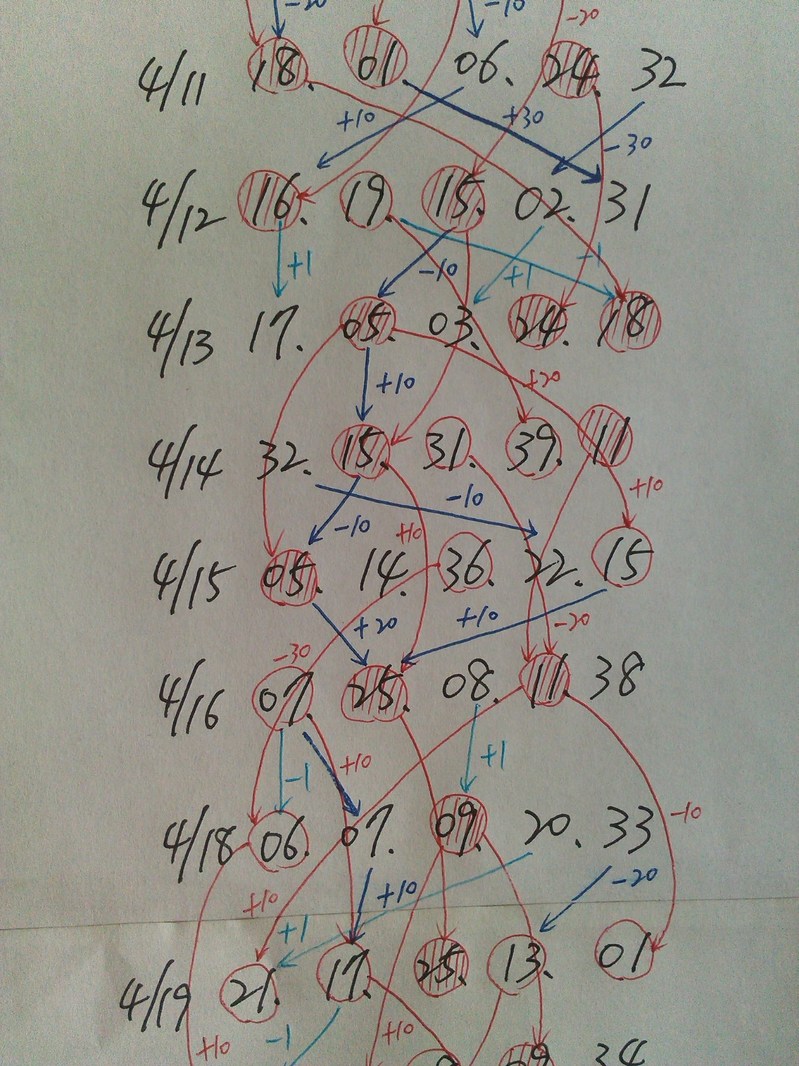 -20 -10 -20
4/11 18. 01 06. 24. 32
+10 +30 -30
4/12 16. 19. 15. 02. 31
+1 -10 +1 -1
4/13 17. 05. 03. 24. 18
+10 +20
4/14 32. 15. 31. 39. 11
-10 +10 -10 +10
4/15 05. 14. 36. 22. 15
-30 +20 +10 -20
4/16 07. 25. 08. 11. 38
-1 +10 +1 -10
4/18 06. 07. 09. 20. 33
+10 +1 +10 -20
4/19 21. 17. 25. 13. 01
+10 -1 +10
34